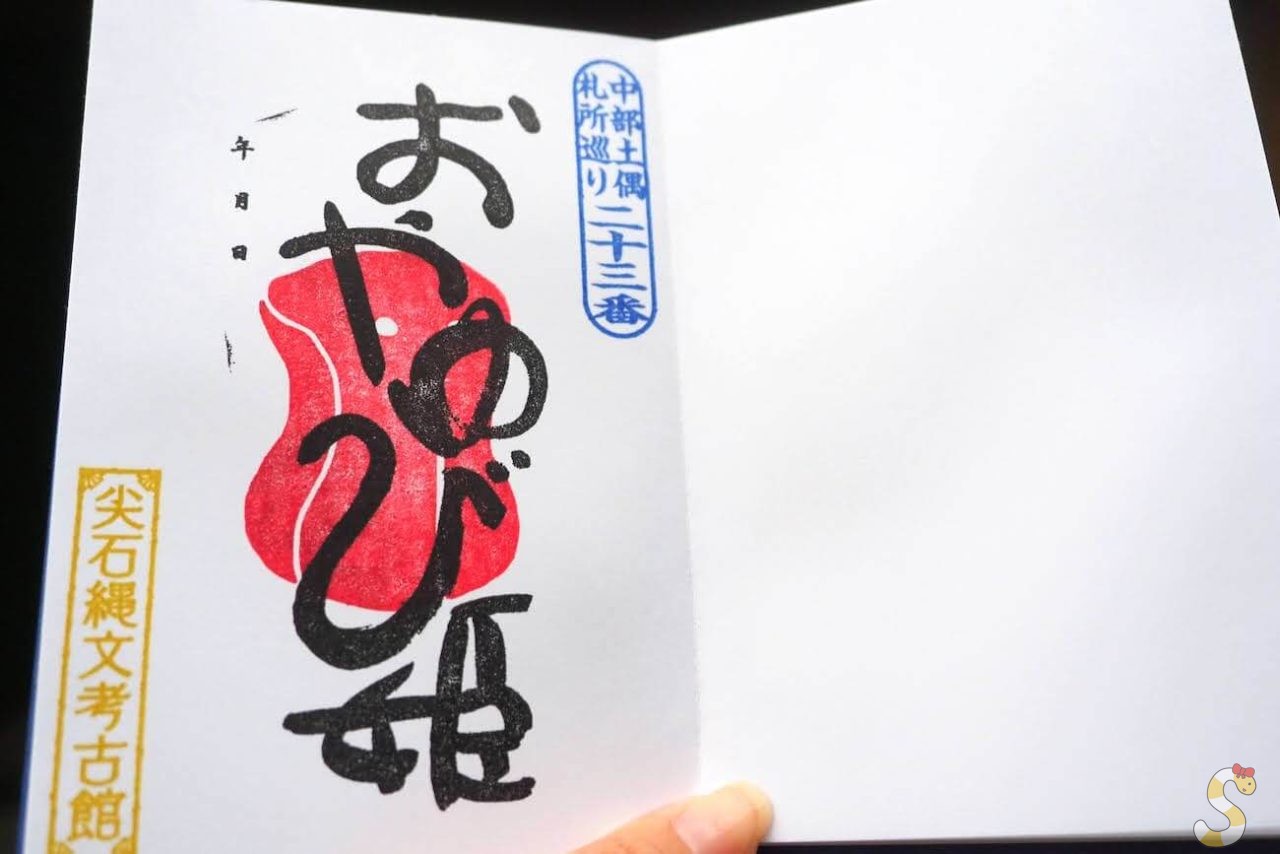 中部土偶
札所巡り
二十三番
おやゆび姫
年 月 日
尖石縄文考古館
S